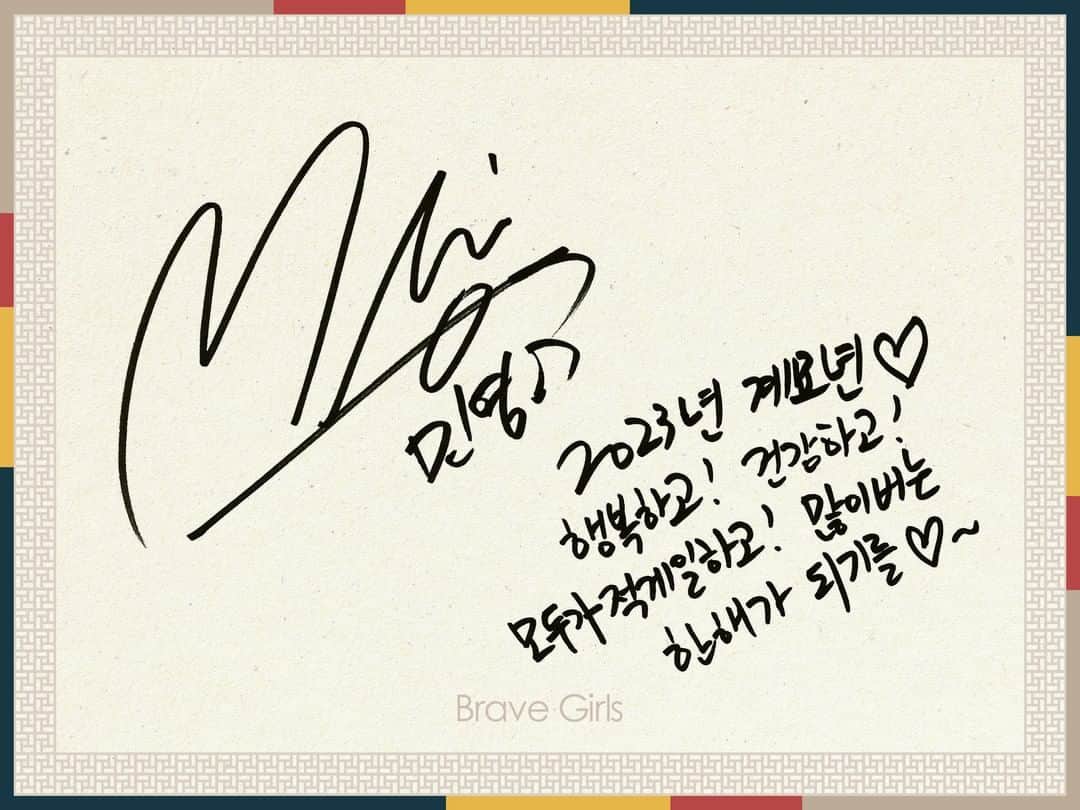 민영
2023년 계묘년♡
행복하고! 건강하고!
모두가 적게일하고! 많이버는
한해가 되기를♡~
Brave Girls